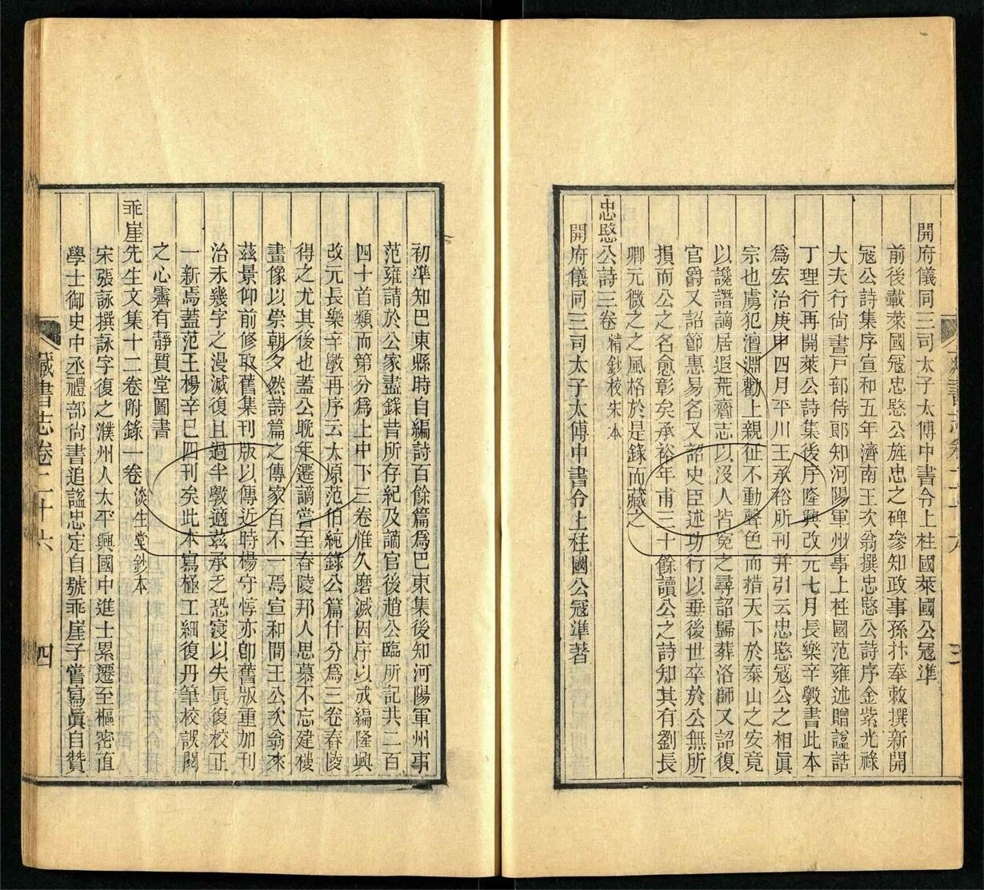 開府儀同三司太子太傅中書令上柱國萊國公寇準
前後載萊國寇忠愍公旌忠之碑參知政事孫抃奉敕撰新開
寇公詩集序宣和五年濟南王次翁撰忠愍公詩序金紫光祿
大夫行尚書戶部侍郎知河陽軍州事上柱國范雍述贈諡誥
丁理行再開萊公詩集後序隆興改元七月長樂辛斆書此本
爲宏治庚申四月平川王承裕所刊幷引云忠愍寇公之相眞
宗也虜犯澶淵勸上親征不動聲色而措天下於泰山之安竟
以讒譖謫居遐荒齎志以沒人皆冤之尋詔歸葬洛師又詔復
官爵又詔節惠易名又詔史臣述功行以垂後世卒於公無所
損而公之名愈彰矣承裕年甫三十餘讀公之詩知其有劉長
卿元微之之風格於是錄而藏之
忠愍公詩三卷 精鈔校朱本
開府儀同三司太子太傅中書令上柱國公寇準著
藏書志卷二十六 三
初準知巴東縣時自編詩百餘篇爲巴東集後知河陽軍州事
范雍請於公家盡錄昔所存紀及謫官後趙公臨所記共二百
四十首類而第分爲上中下三卷惟久磨滅因序以成編隆興
改元長樂辛斆再序云太原范伯純錄公篇什分爲三卷舂陵
得之尤其後也蓋公晚年遷謫嘗至舂陵邦人思慕不忘建樓
畫像以崇朝夕然詩篇之傳家百不一焉宣和間王公次翁來
茲景仰前修取舊集刊版以傳近時楊守惇亦卽舊版重加刊
治未幾字之漫滅復且過半斆適茲承之恐寖以失眞復校正
一新焉蓋范王楊辛已四刊矣此本寫極工細復丹筆校誤閱
之心霽有靜質堂圖書
乖崖先生文集十二卷附錄一卷 淡生堂鈔本
宋張詠撰詠字復之濮州人太平興國中進士累遷至樞密直
學士御史中丞禮部尚書追諡忠定自號乖崖子嘗寫眞自贊
藏書志卷二十六 四